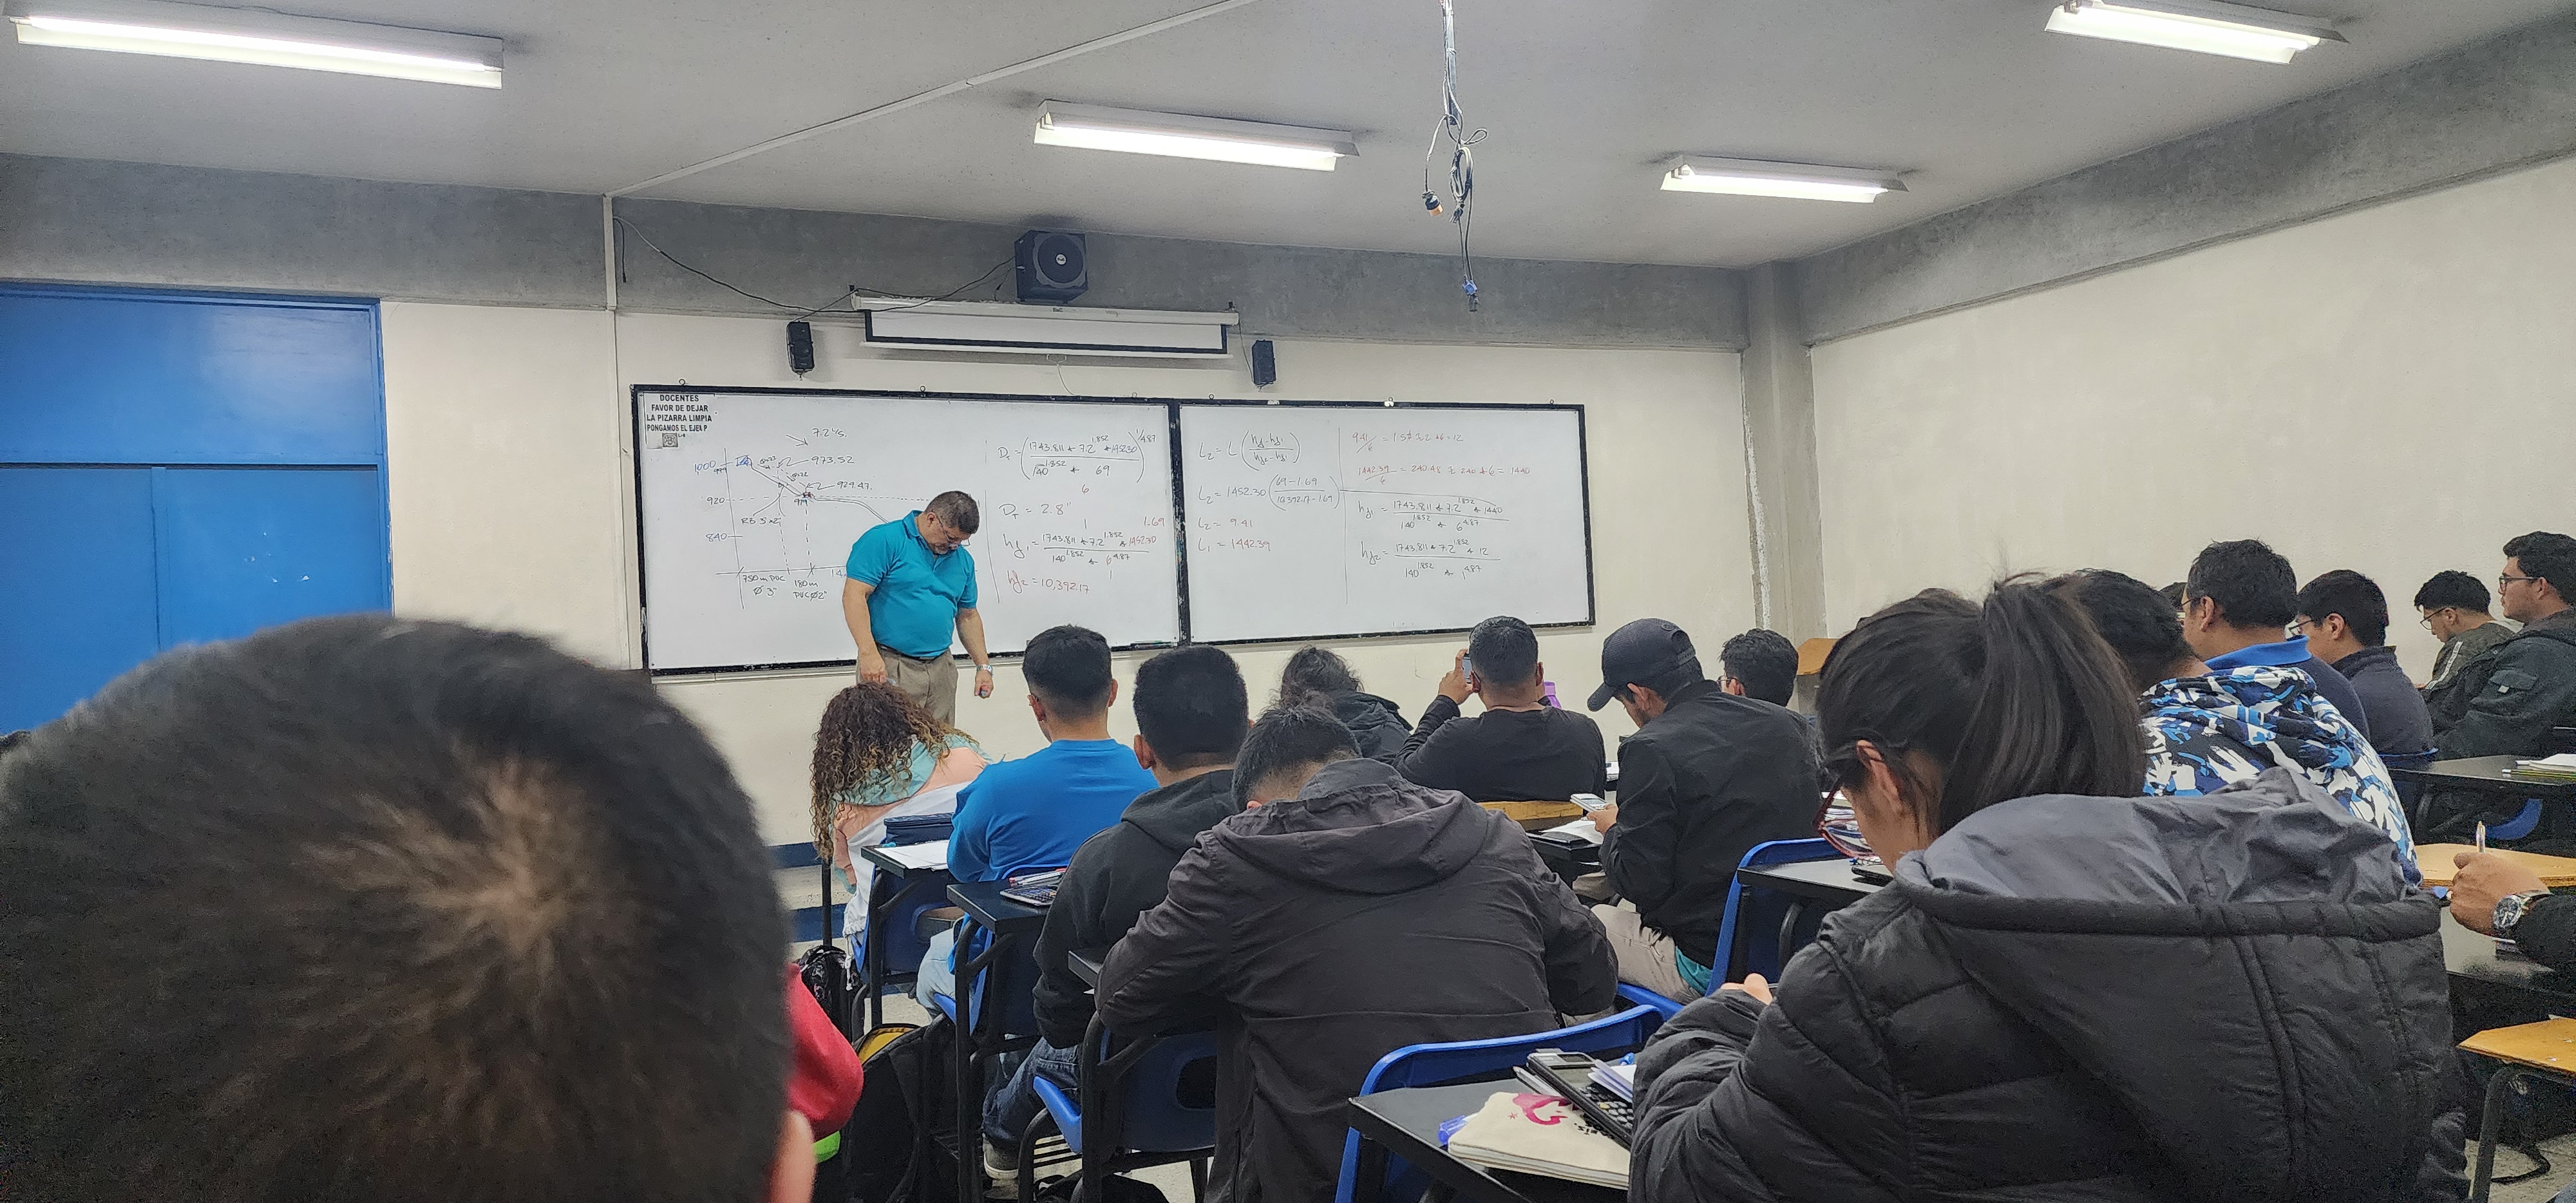 DOCENTES
FAVOR DE DEJAR
LA PIZARRA LIMPIA
PONGAMOS EL EJEM P
1000
973.52
920
929.47.
840
750m PVC
Ø 3"
180m
PVC Ø2"
14
D_T = (1743.811 * 7.2^1.852 * 1452.30 / 140^1.852 * 69)^1/4.87
6
D_T = 2.8"
1
1.69
hf_1 = 1743.811 * 7.2^1.852 * 1452.30 / 140^1.852 * 6^4.87
1
hf_2 = 10,392.17
L_2 = L (hf - hf_1 / hf_2 - hf_1)
L_2 = 1452.30 (69 - 1.69 / 10,392.17 - 1.69)
L_2 = 9.41
L_1 = 1442.39
1442.39/6 = 240.48 ≈ 240 * 6 = 1440
hf_1 = 1743.811 * 7.2^1.852 * 1440 / 140^1.852 * 6^4.87
hf_2 = 1743.811 * 7.2^1.852 * 12 / 140^1.852 * 1^4.87